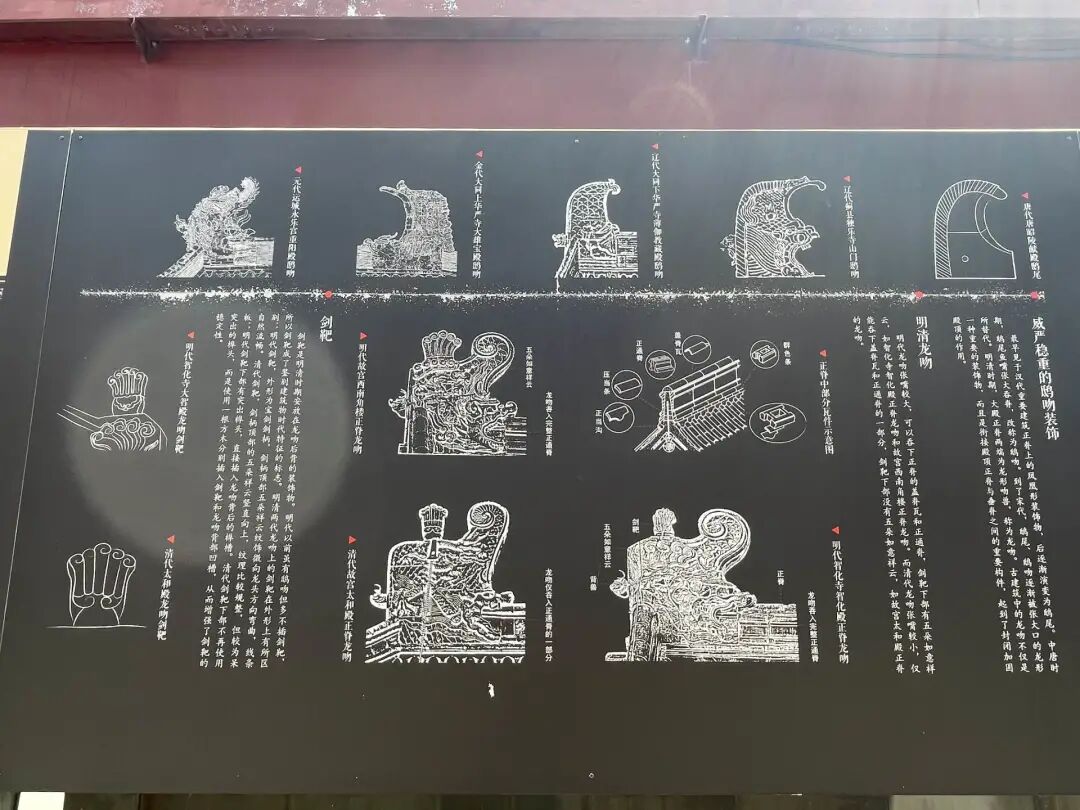 威严稳重的鸱吻装饰
最早见于汉代重要建筑正脊上的凤凰形装饰物，后逐渐演变为鸱尾。中唐时
期，鸱尾鱼尾张大吞脊，改称为鸱吻。到了宋代，鸱尾、鸱吻逐渐被张大口的龙形
所替代。明清时期，大殿正脊两端为龙形吻兽，称为龙吻。古建筑中的龙吻不仅是
一种重要的装饰物，而且是衔接殿顶正脊与垂脊之间的重要构件，起到了封闭加固
殿顶的作用。
唐代唐昭陵献殿鸱尾
辽代蓟县独乐寺山门鸱吻
辽代大同下华严寺薄伽教藏殿鸱吻
金代大同上华严寺大雄宝殿鸱吻
元代运城永乐宫重阳殿鸱吻
明清龙吻
明代龙吻张嘴较大，可以吞下正脊的盖脊瓦和正通脊，剑靶下部有五朵如意祥
云，如智化寺智化殿正脊龙吻和故宫西南角楼正脊龙吻。而清代龙吻张嘴较小，仅
能吞下盖脊瓦和正通脊的一部分，剑靶下部没有五朵如意祥云，如故宫太和殿正脊
的龙吻。
正脊中部部分瓦件示意图
群色条
盖脊瓦
正通脊
压当条
正当沟
明代智化寺智化殿正脊龙吻
龙吻吞入完整正通脊
正脊
剑靶
五朵如意祥云
背兽
明代故宫西南角楼正脊龙吻
五朵如意祥云
龙吻吞入完整正通脊
清代故宫太和殿正脊龙吻
龙吻仅吞入正通脊的一部分
剑靶
剑靶是明清时期安放在龙吻后背的装饰物。明代以前虽有鸱吻但多不插剑靶，
所以剑靶成了鉴别建筑物时代特征的标志。明清两代龙吻上的剑靶在外形上有所区
别：明代剑靶，外形为宝剑剑柄，剑柄顶部五朵祥云纹饰微向龙头方向弯曲，线条
自然流畅。清代剑靶，剑柄顶部的五朵祥云竖直向上，纹理比较规整，但较为呆
板；明代剑靶下部有突出榫头，直接插入龙吻背后的榫槽。清代剑靶下部不再使用
突出的榫头，而是使用一根方木分别插入剑靶和龙吻背部凹槽，从而增强了剑靶的
稳定性。
明代智化寺大智殿龙吻剑靶
清代太和殿龙吻剑靶